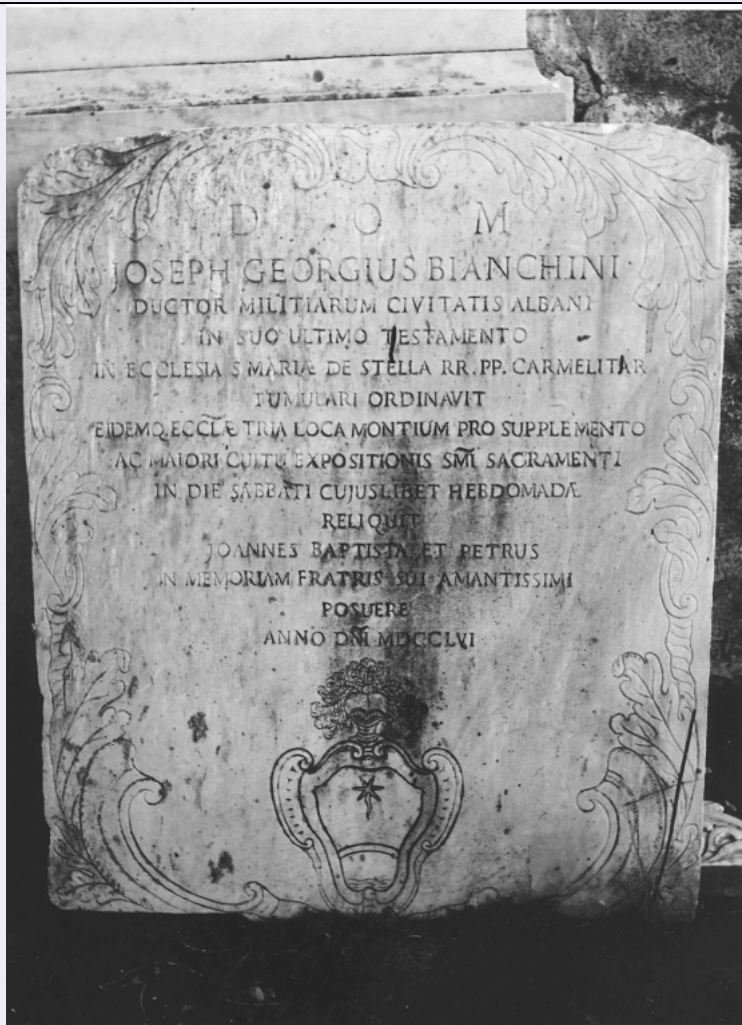 D O M
JOSEPH GEORGIUS BIANCHINI
DUCTOR MILITIARUM CIVITATIS ALBANI
IN SUO ULTIMO TESTAMENTO
IN ECCLESIA S MARIÆ DE STELLA RR. PP. CARMELITAR
TUMULARI ORDINAVIT
EIDEMQ. ECCLÆ TRIA LOCA MONTIUM PRO SUPPLEMENTO
AC MAIORI CULTU EXPOSITIONIS SMI SACRAMENTI
IN DIE SABBATI CUJUSLIBET HEBDOMADÆ
RELIQUIT
JOANNES BAPTISTA ET PETRUS
IN MEMORIAM FRATRIS SUI AMANTISSIMI
POSUERE
ANNO DNI MDCCLVI